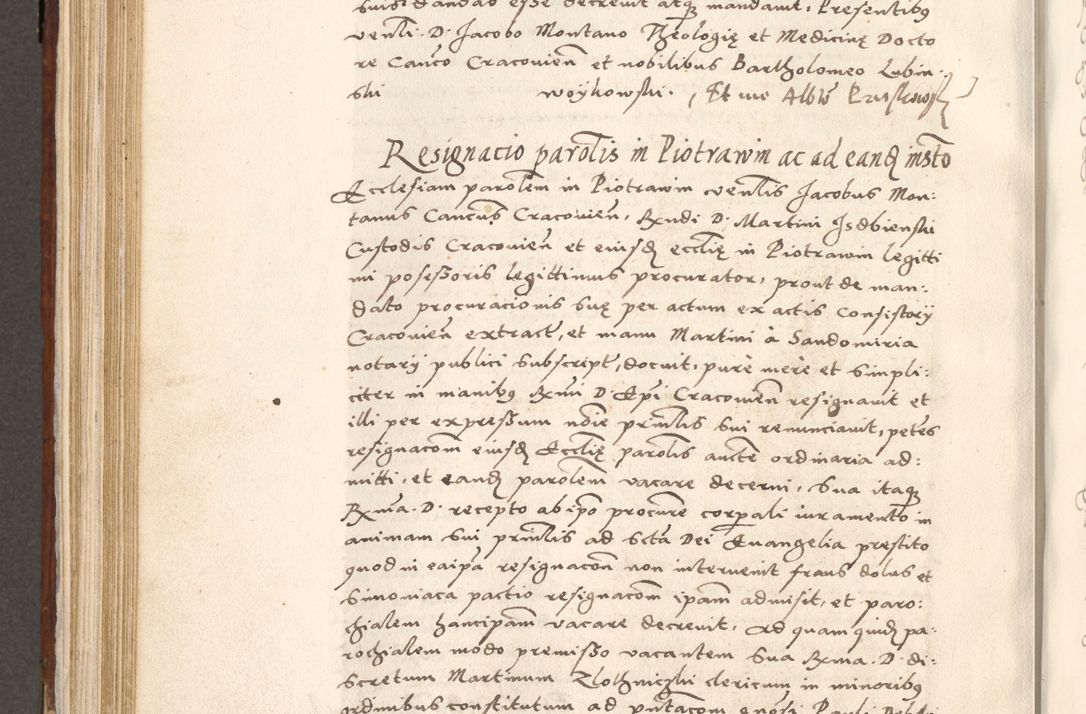 suis dandas esse decrevit atqꝫ mandavit, Presentibꝰ
venli: D. Jacobo Montano Theologię et Medicinę Docto
re Canco Cracovien̄ et nobilibus Bartholomeo Lubin
ski woÿkowski. Et me Albto
Resignacio parolis in Piotrawin ac ad eandꝫ insto
Ecclesiam parolem in Piotrawin venlis Jacobus Mon:
tanus Cancus Cracovien̄, Rndi D. Martini Isdbienski
Custodis Cracovien̄ et eiusdꝫ ecclię in Piotrawin legitti
mi posesßoris legittimus procurator, prout de man:
dato procuracionis suę per actum ex actis Consistorÿ
Cracovien̄ extract, et manu Martini à Sandomiria
notarÿ publici subscript, docuit, purè merè et simpli:
citer in manibꝰ Rmi D. Epi Cracovien̄ resignavit et
illi per expresßum noie prinlis sui renunciavit, petēs
resignacom eiusdꝫ Ecclię parolis aucte ordinaria ad:
mitti, et eandꝫ parolem vacare decerni, Sua itaqꝫ
Rma. D. recepto ab ipo procure corporali iuramento in
animam sui prinlis ad scta Dei Euangelia prestito
quod in ea ipa resignacon non intervenit fraus dolus et
simoniaca pactio resignacom ipam admisit, et paro:
chialem hancipam vacare decrevit, Ad quam quidꝫ pa:
rochialem modo premisßo vacantem Sua Rma. D. di:
scretum Martinum Zlothniczki clericum in minoribꝰ
ordinibus constitutum ad pntacom enosi Pauli